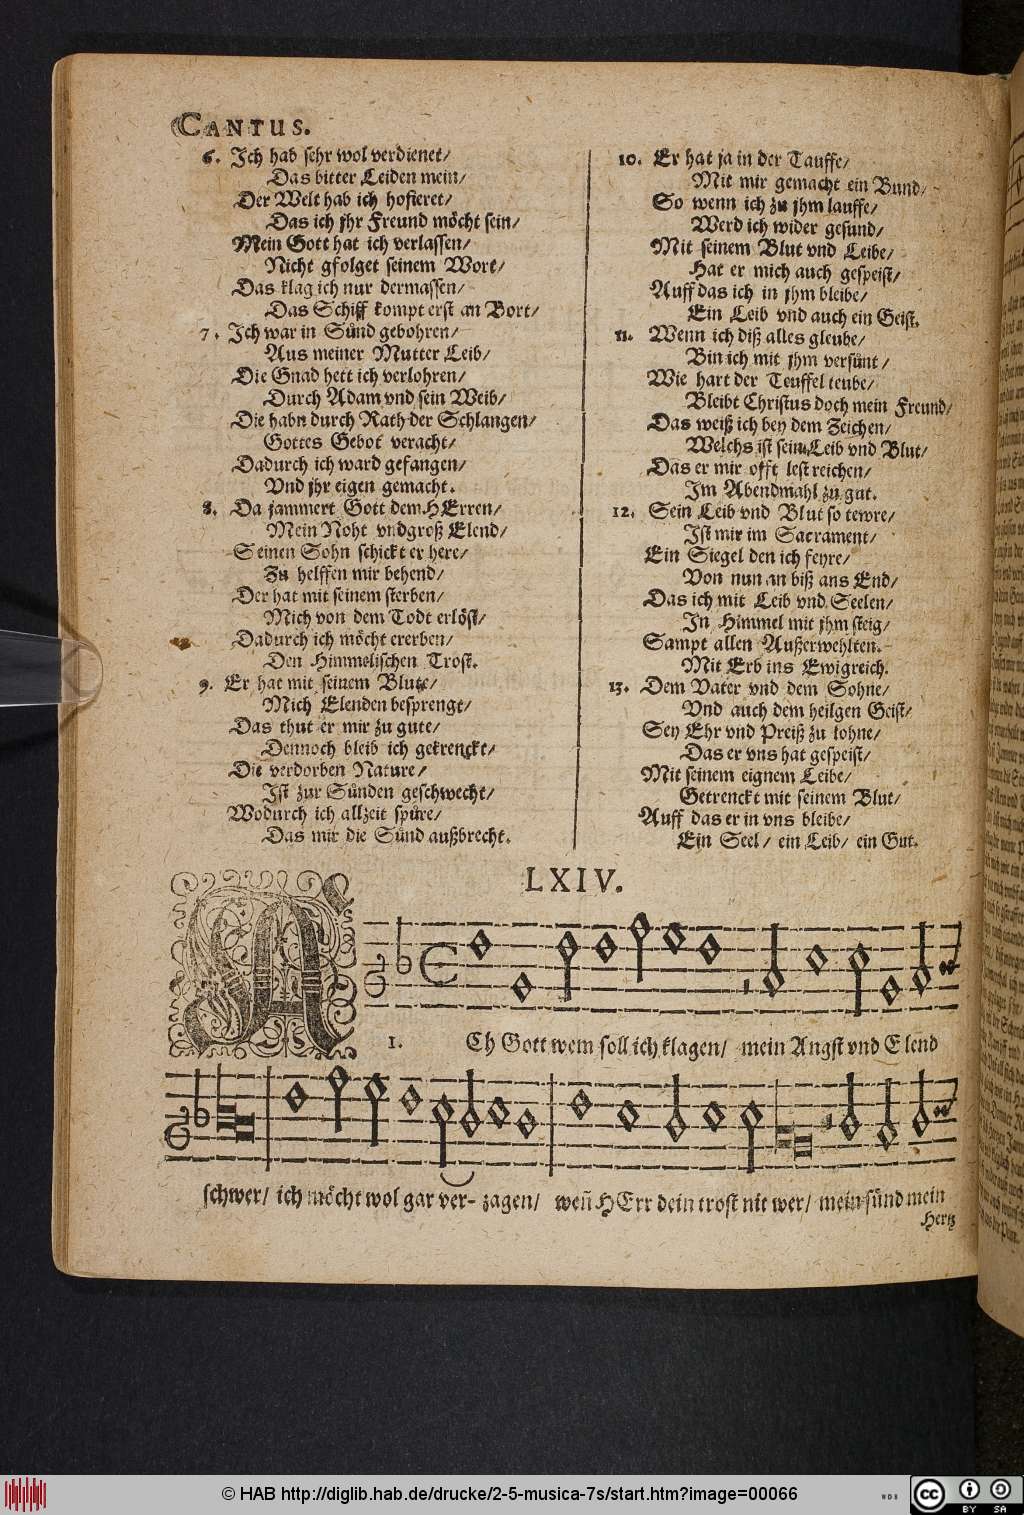 CANTUS.
6. Ich hab sehr wol verdienet/
Das bitter Leiden mein/
Der Welt hab ich hofieret/
Das ich jhr Freund möcht sein/
Mein Gott hat ich verlassen/
Nicht gfolget seinem Wort/
Das klag ich nur dermassen/
Das Schiff kompt erst an Bort/
7. Ich war in Sünd gebohren/
Aus meiner Mutter Leib/
Die Gnad hett ich verlohren/
Durch Adam vnd sein Weib/
Die habn durch Rath der Schlangen/
Gottes Gebot veracht/
Dadurch ich ward gefangen/
Vnd jhr eigen gemacht.
8. Da jammert Gott dem HErren/
Mein Noht vnd groß Elend/
Seinen Sohn schickt er here/
Zu helffen mir behend/
Der hat mit seinem sterben/
Mich von dem Todt erlöst/
Dadurch ich möcht ererben/
Den Himmelischen Trost.
9. Er hat mit seinem Blute/
Mich Elenden besprengt/
Das thut er mir zu gute/
Dennoch bleib ich gekrenckt/
Die verdorben Nature/
Ist zur Sünden geschwecht/
Wodurch ich allzeit spüre/
Das mir die Sünd außbrecht.
10. Er hat ja in der Tauffe/
Mit mir gemacht ein Bund/
So wenn ich zu jhm lauffe/
Werd ich wider gesund/
Mit seinem Blut vnd Leibe/
Hat er mich auch gespeist/
Auff das ich in jhm bleibe/
Ein Leib vnd auch ein Geist.
11. Wenn ich diß alles gleube/
Bin ich mit jhm versünt/
Wie hart der Teuffel teube/
Bleibt Christus doch mein Freund/
Das weiß ich bey dem Zeichen/
Welchs ist sein Leib vnd Blut/
Das er mir offt lest reichen/
Im Abendmahl zu gut.
12. Sein Leib vnd Blut so tewre/
Ist mir im Sacrament/
Ein Siegel den ich feyre/
Von nun an biß ans End/
Das ich mit Leib vnd Seelen/
In Himmel mit jhm steig/
Sampt allen Außerwehlten.
Mit Erb ins Ewigreich.
13. Dem Vater vnd dem Sohne/
Vnd auch dem heilgen Geist/
Sey Ehr vnd Preiß zu lohne/
Das er vns hat gespeist/
Mit seinem eignem Leibe/
Getrenckt mit seinem Blut/
Auff das er in vns bleibe/
Ein Seel/ ein Leib/ ein Gut.
LXIV.
1. ACh Gott wem soll ich klagen/ mein Angst vnd Elend
schwer/ ich möcht wol gar ver- zagen/ weñ HErr dein trost nit wer/ mein sünd mein
Hertz
© HAB http://diglib.hab.de/drucke/2-5-musica-7s/start.htm?image=00066
WDB
cc BY SA